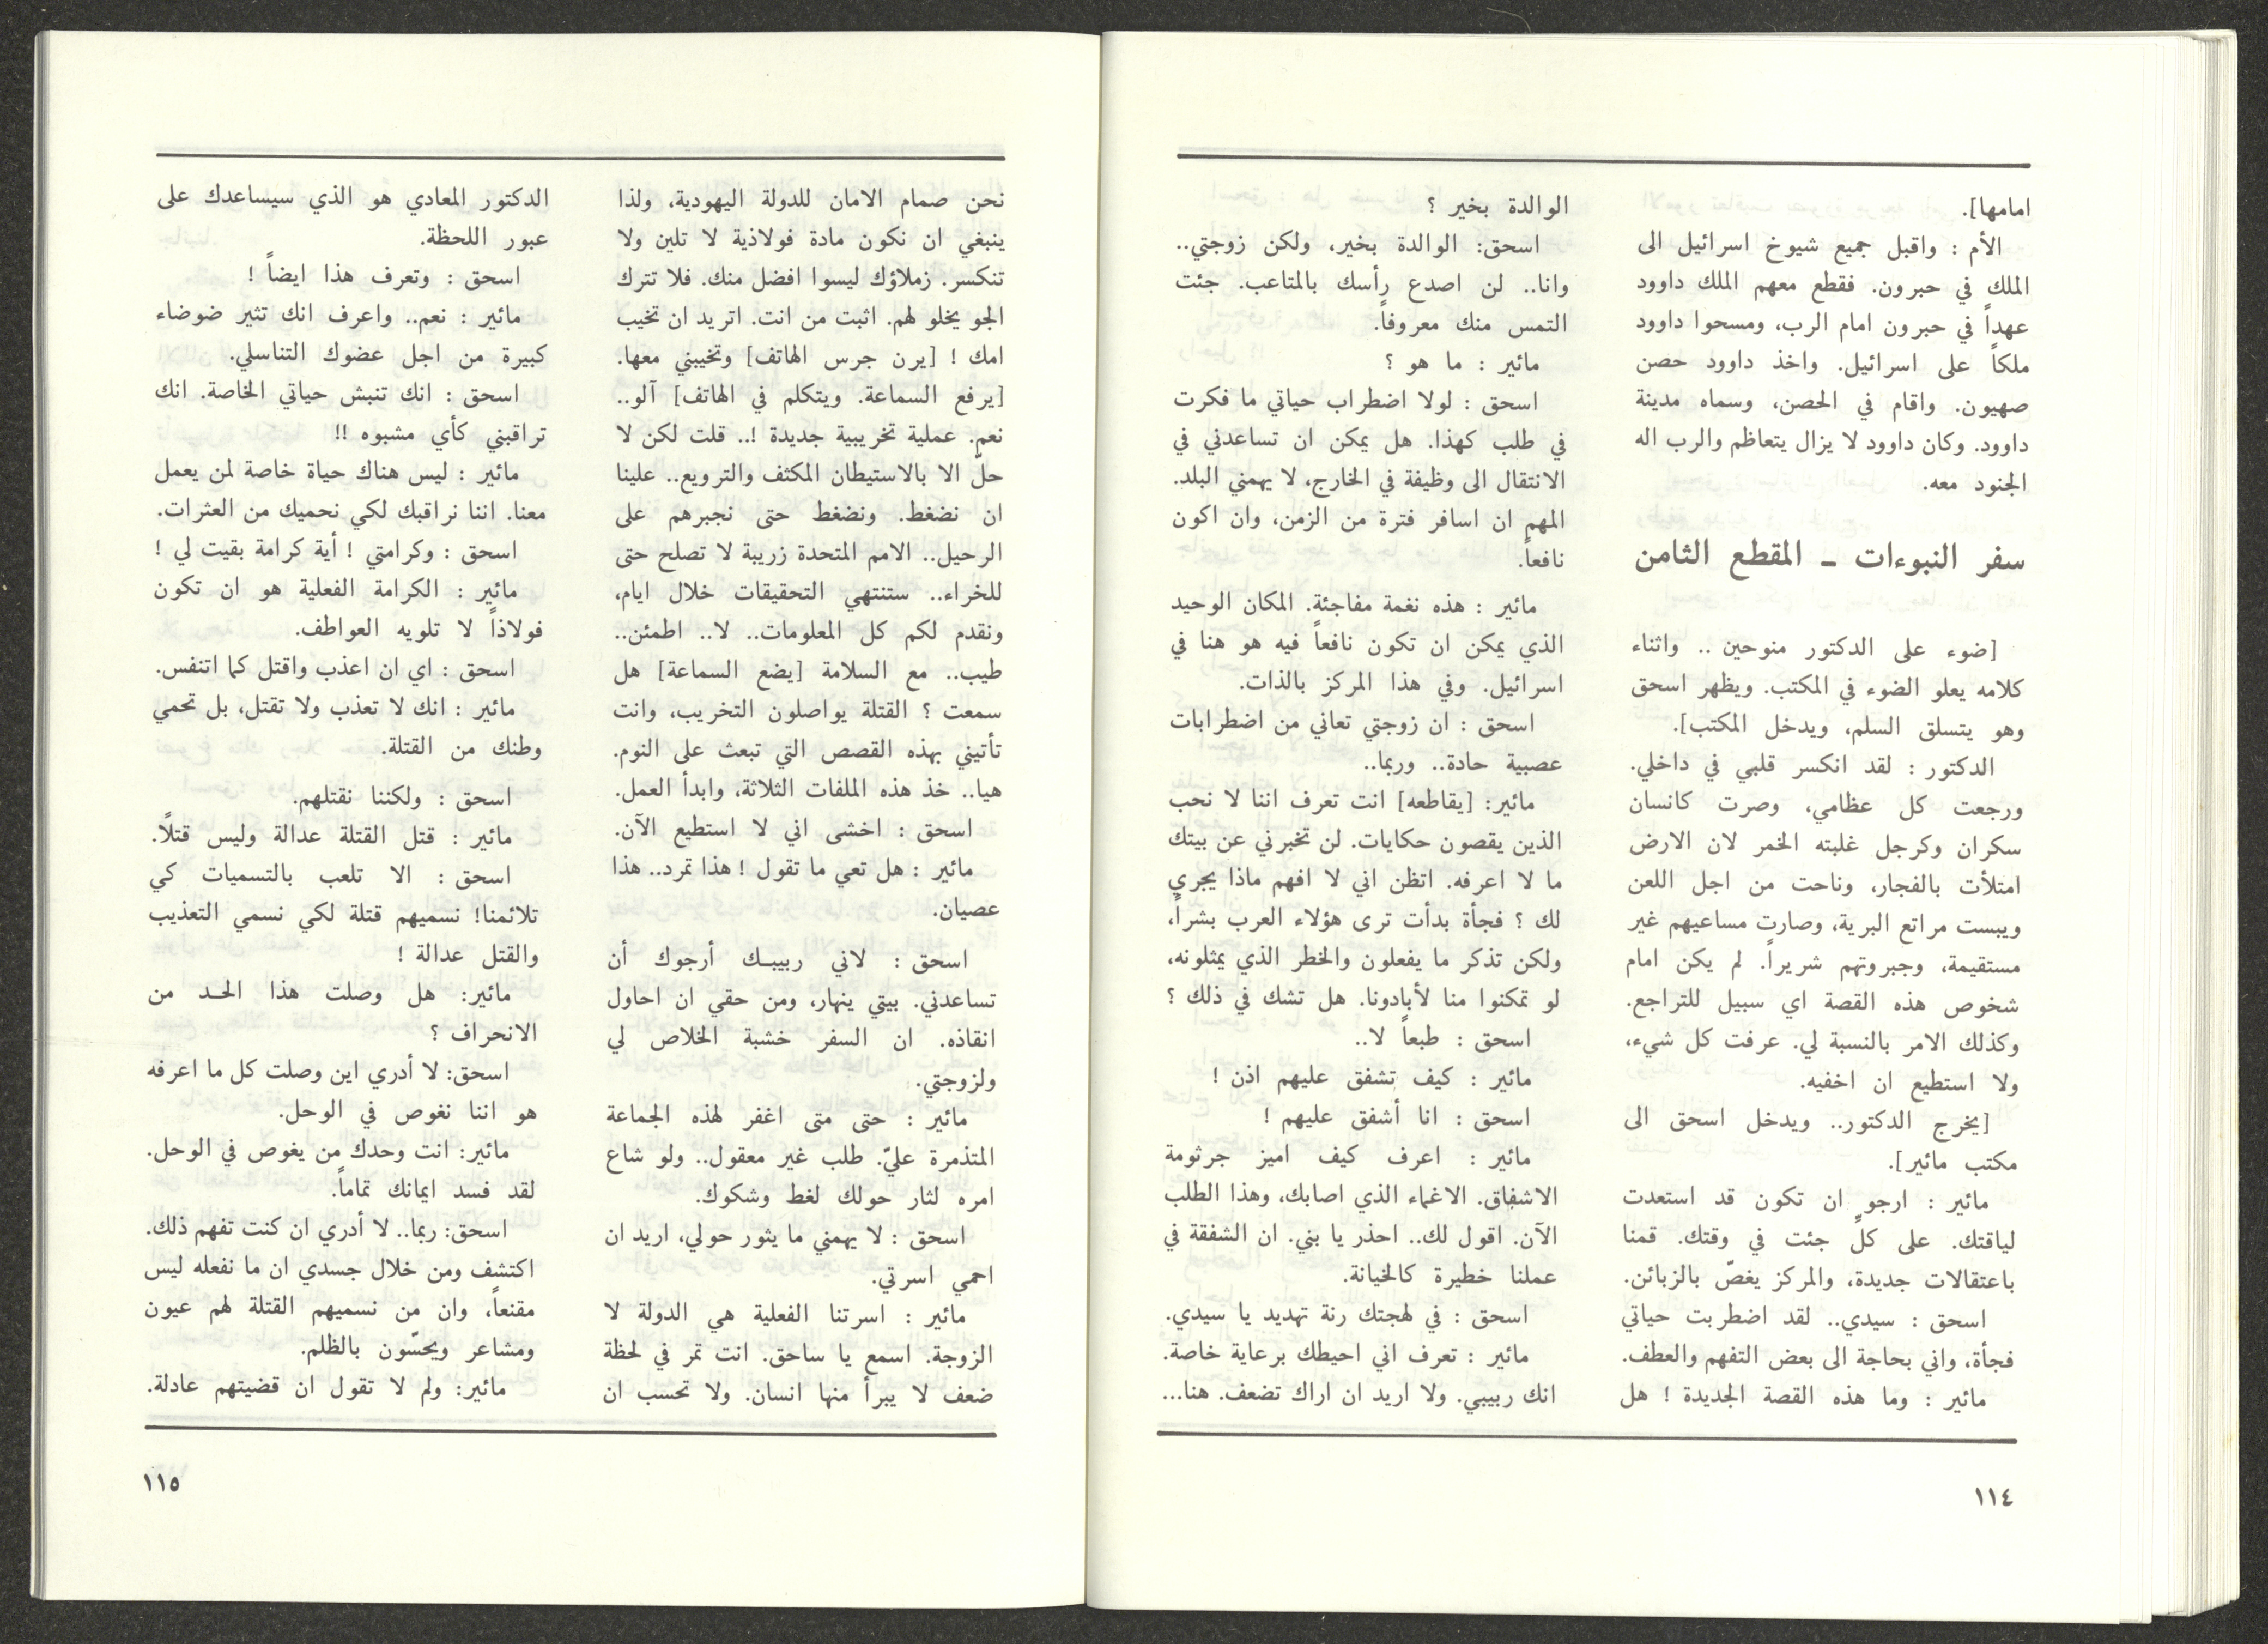 امامها].
الأم : واقبل جميع شيوخ اسرائيل الى
الملك في حبرون. فقطع معهم الملك داوود
عهداً في حبرون امام الرب، ومسحوا داوود
ملكاً على اسرائيل. واخذ داوود حصن
صهيون. واقام في الحصن، وسماه مدينة
داوود. وكان داوود لا يزال يتعاظم والرب اله
الجنود معه.
سفر النبوءات ـ المقطع الثامن
[ضوء على الدكتور منوحين .. واثناء
كلامه يعلو الضوء في المكتب. ويظهر اسحق
وهو يتسلق السلم، ويدخل المكتب].
الدكتور : لقد انكسر قلبي في داخلي.
ورجعت كل عظامي، وصرت كانسان
سكران وكرجل غلبته الخمر لان الارض
امتلأت بالفجار، وناحت من اجل اللعن
ويبست مراتع البرية، وصارت مساعيهم غير
مستقيمة، وجبروتهم شريراً. لم يكن امام
شخوص هذه القصة اي سبيل للتراجع.
وكذلك الامر بالنسبة لي. عرفت كل شيء،
ولا استطيع ان اخفيه.
[يخرج الدكتور.. ويدخل اسحق الى
مكتب مائير].
مائير : ارجو ان تكون قد استعدت
لياقتك. على كلٍ جئت في وقتك. قمنا
باعتقالات جديدة، والمركز يغصّ بالزبائن.
اسحق : سيدي.. لقد اضطربت حياتي
فجأة، واني بحاجة الى بعض التفهم والعطف.
مائير : وما هذه القصة الجديدة ! هل
الوالدة بخير ؟
اسحق: الوالدة بخير، ولكن زوجتي..
وانا.. لن اصدع رأسك بالمتاعب. جئت
التمس منك معروفاً.
مائير : ما هو ؟
اسحق : لولا اضطراب حياتي ما فكرت
في طلب كهذا. هل يمكن ان تساعدني في
الانتقال الى وظيفة في الخارج، لا يهمني البلد.
المهم ان اسافر فترة من الزمن، وان اكون
نافعاً.
مائير : هذه نغمة مفاجئة. المكان الوحيد
الذي يمكن ان تكون نافعاً فيه هو هنا في
اسرائيل. وفي هذا المركز بالذات.
اسحق : ان زوجتي تعاني من اضطرابات
عصبية حادة.. وربما..
مائير: [يقاطعه] انت تعرف اننا لا نحب
الذين يقصون حكايات. لن تخبرني عن بيتك
ما لا اعرفه. اتظن اني لا افهم ماذا يجري
لك ؟ فجأة بدأت ترى هؤلاء العرب بشراً،
ولكن تذكر ما يفعلون والخطر الذي يمثلونه،
لو تمكنوا منا لأبادونا. هل تشك في ذلك ؟
اسحق : طبعاً لا..
مائير : كيف تشفق عليهم اذن !
اسحق : انا أشفق عليهم !
مائير : اعرف كيف اميز جرثومة
الاشفاق. الاغماء الذي اصابك، وهذا الطلب
الآن. اقول لك.. احذر يا بني. ان الشفقة في
عملنا خطيرة كالخيانة.
اسحق : في لهجتك رنة تهديد يا سيدي.
مائير : تعرف اني احيطك برعاية خاصة.
انك ربيبي. ولا اريد ان اراك تضعف. هنا...
١١٤
نحن صمام الامان للدولة اليهودية، ولذا
ينبغي ان نكون مادة فولاذية لا تلين ولا
تنكسر. زملاؤك ليسوا افضل منك. فلا تترك
الجو يخلو لهم. اثبت من انت. اتريد ان تخيب
امك ! [يرن جرس الهاتف] وتخيبني معها.
[يرفع السماعة. ويتكلم في الهاتف] آلو..
نعم. عملية تخريبية جديدة !.. قلت لكن لا
حلّ الا بالاستيطان المكثف والترويع.. علينا
ان نضغط. ونضغط حتى نجبرهم على
الرحيل.. الامم المتحدة زريبة لا تصلح حتى
للخراء.. ستنتهي التحقيقات خلال ايام،
ونقدم لكم كل المعلومات.. لا.. اطمئن..
طيب.. مع السلامة [يضع السماعة] هل
سمعت ؟ القتلة يواصلون التخريب، وانت
تأتيني بهذه القصص التي تبعث على النوم.
هيا.. خذ هذه الملفات الثلاثة، وابدأ العمل.
اسحق : اخشى اني لا استطيع الآن.
مائير : هل تعي ما تقول ! هذا تمرد.. هذا
عصيان.
اسحق : لاني ربيبـك أرجوك أن
تساعدني. بيتي ينهار، ومن حقي ان احاول
انقاذه. ان السفر خشبة الخلاص لي
ولزوجتي.
مائير : حتى متى اغفر لهذه الجماعة
المتذمرة عليّ. طلب غير معقول.. ولو شاع
امره لثار حولك لغط وشكوك.
اسحق : لا يهمني ما يثور حولي، اريد ان
احمي اسرتي.
مائير : اسرتنا الفعلية هي الدولة لا
الزوجة. اسمع يا ساحق. انت تمر في لحظة
ضعف لا يبرأ منها انسان. ولا تحسب ان
الدكتور المعادي هو الذي سيساعدك على
عبور اللحظة.
اسحق : وتعرف هذا ايضاً !
مائير : نعم.. واعرف انك تثير ضوضاء
كبيرة من اجل عضوك التناسلي.
اسحق : انك تنبش حياتي الخاصة. انك
تراقبني كأي مشبوه !!
مائير : ليس هناك حياة خاصة لمن يعمل
معنا. اننا نراقبك لكي نحميك من العثرات.
اسحق : وكرامتي ! أية كرامة بقيت لي !
مائير : الكرامة الفعلية هو ان تكون
فولاذاً لا تلويه العواطف.
اسحق : اي ان اعذب واقتل كما اتنفس.
مائير : انك لا تعذب ولا تقتل، بل تحمي
وطنك من القتلة.
اسحق : ولكننا نقتلهم.
مائير : قتل القتلة عدالة وليس قتلاً.
اسحق : الا تلعب بالتسميات كي
تلائمنا! نسميهم قتلة لكي نسمي التعذيب
والقتل عدالة !
مائير: هل وصلت هذا الحـد من
الانحراف ؟
اسحق: لا أدري اين وصلت كل ما اعرفه
هو اننا نغوص في الوحل.
مائير: انت وحدك من يغوص في الوحل.
لقد فسد ايمانك تماماً.
اسحق: ربما.. لا أدري ان كنت تفهم ذلك.
اكتشف ومن خلال جسدي ان ما نفعله ليس
مقنعاً، وان من نسميهم القتلة لهم عيون
ومشاعر ويحسّون بالظلم.
مائير: ولم لا تقول ان قضيتهم عادلة.
١١٥